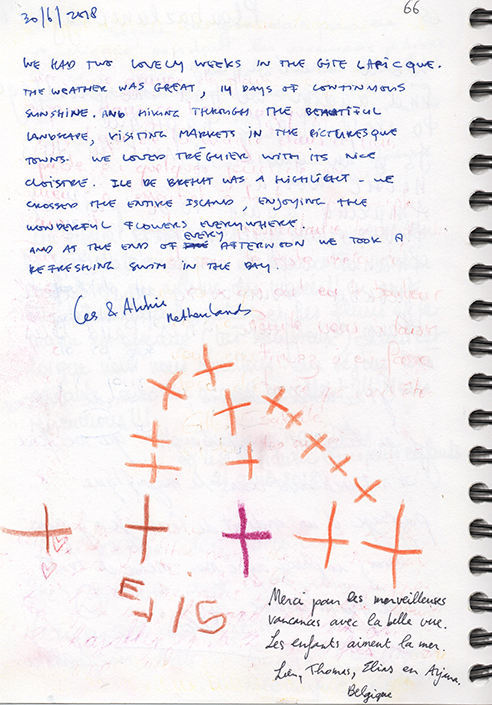 30/6/2018
66
WE HAD TWO LOVELY WEEKS IN THE GITE LAPICQUE.
THE WEATHER WAS GREAT, 14 DAYS OF CONTINUOUS
SUNSHINE. AND HIKING THROUGH THE BEAUTIFUL
LANDSCAPE, VISITING MARKETS IN THE PICTURESQUE
TOWNS. WE LOVED TRÉGUIER WITH ITS NICE
CLOISTRE. ILE DE BREHAT WAS A HIGHLIGHT - WE
CROSSED THE ENTIRE ISLAND, ENJOYING THE
WONDERFUL FLOWERS EVERYWHERE.
AND AT THE END OF EVERY AFTERNOON WE TOOK A
REFRESHING SWIM IN THE BAY.
Ces &
Netherlands
Merci pour les merveilleuses
vancances avec la belle vue.
Les enfants aiment la mer.
Thomas, Elias en
Belgique